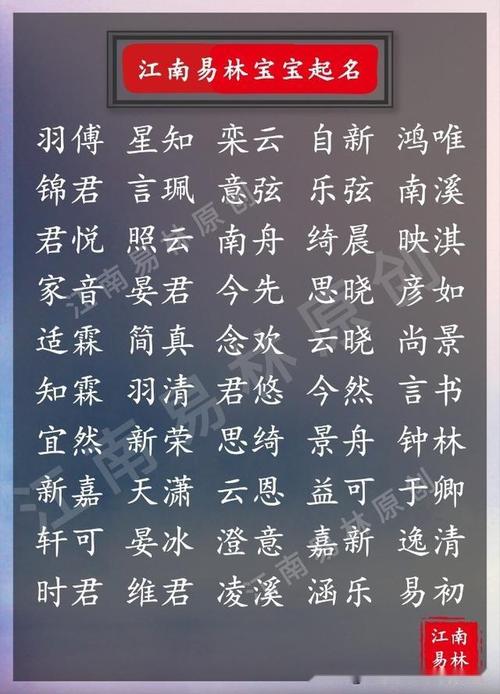 江南易林宝宝起名
羽傅 星知 栾云 自新 鸿唯
锦君 言珮 意弦 乐弦 南溪
君悦 照云 南舟 绮晨 映淇
家音 晏君 今先 思晓 彦如
适霖 简真 念欢 云晓 尚景
知霖 羽清 君悠 今然 言书
宜然 新荣 思绮 景舟 钟林
新嘉 天潇 云恩 益可 于卿
轩可 晏冰 澄意 嘉新 逸清
时君 维君 凌溪 涵乐 易初
江南
易林
江南易林原创
江南易林原创
江南易林原创